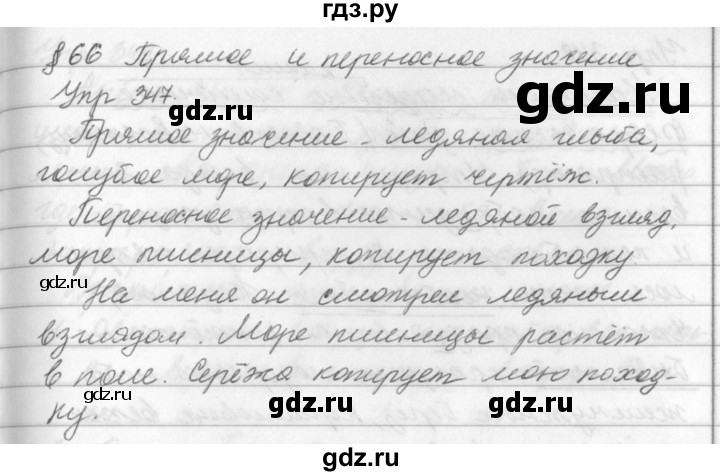 гдз.ру
§66 Прямое и переносное значение
Упр 347.
gdz.ru
gdz.ru
gdz.ru
Прямое значение - ледяная глыба,
голубое море, копирует чертёж.
Переносное значение - ледяной взгляд,
море пшеницы, копирует походку.
gdz.ru
gdz.ru
На меня он смотрел ледяным
взглядом. Море пшеницы растёт
в поле. Серёжа копирует мою поход-
ку.
gdz.ru
gdz.ru
gdz.ru